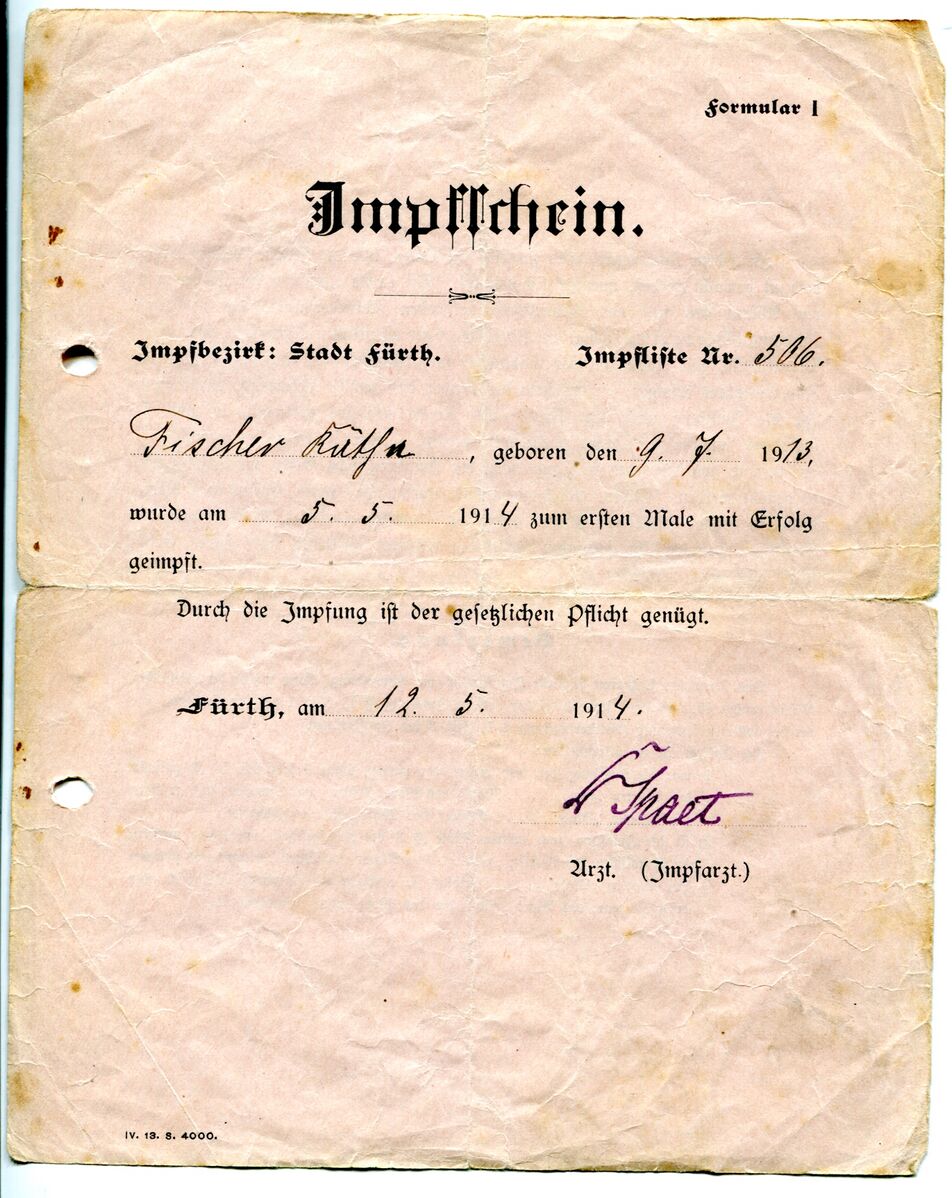 Formular I
Impfschein.
Impfbezirk: Stadt Fürth. Impfliste Nr. 506.
Fischer Käthe, geboren den 9. 7. 1913,
wurde am 5. 5. 1914 zum ersten Male mit Erfolg
geimpft.
Durch die Impfung ist der gesetzlichen Pflicht genügt.
Fürth, am 12. 5. 1914.
Dr Spaet
Arzt. (Impfarzt.)
IV. 13. S. 4000.